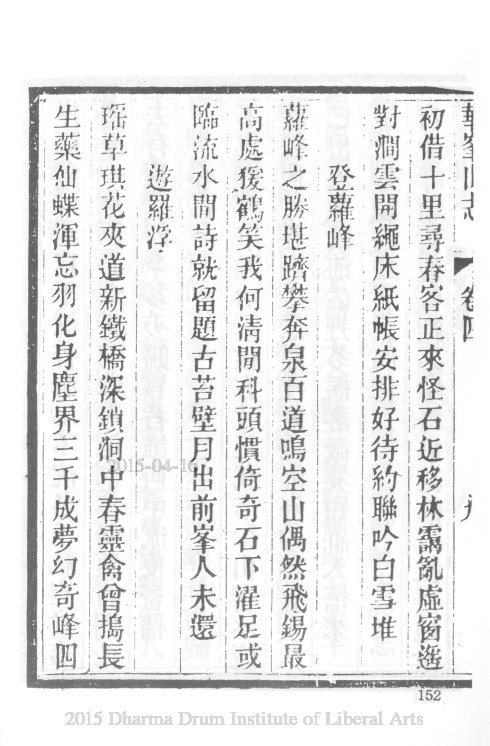 華峯山志 卷四
初借十里尋春客正來怪石近移林靄亂虛窗遙
對澗雲開繩床紙帳安排好待約聯吟白雪堆
登蘿峰
蘿峰之勝堪躋攀奔泉百道鳴空山偶然飛錫最
高處猨鶴笑我何清閒科頭慣倚奇石下濯足或
臨流水間詩就留題古苔壁月出前峯人未還
遊羅浮
瑤草琪花夾道新鐵橋深鎖洞中春靈禽曾搗長
生藥仙蝶渾忘羽化身塵界三千成夢幻奇峰四
2015-04-16
152
2015 Dharma Drum Institute of Liberal Arts